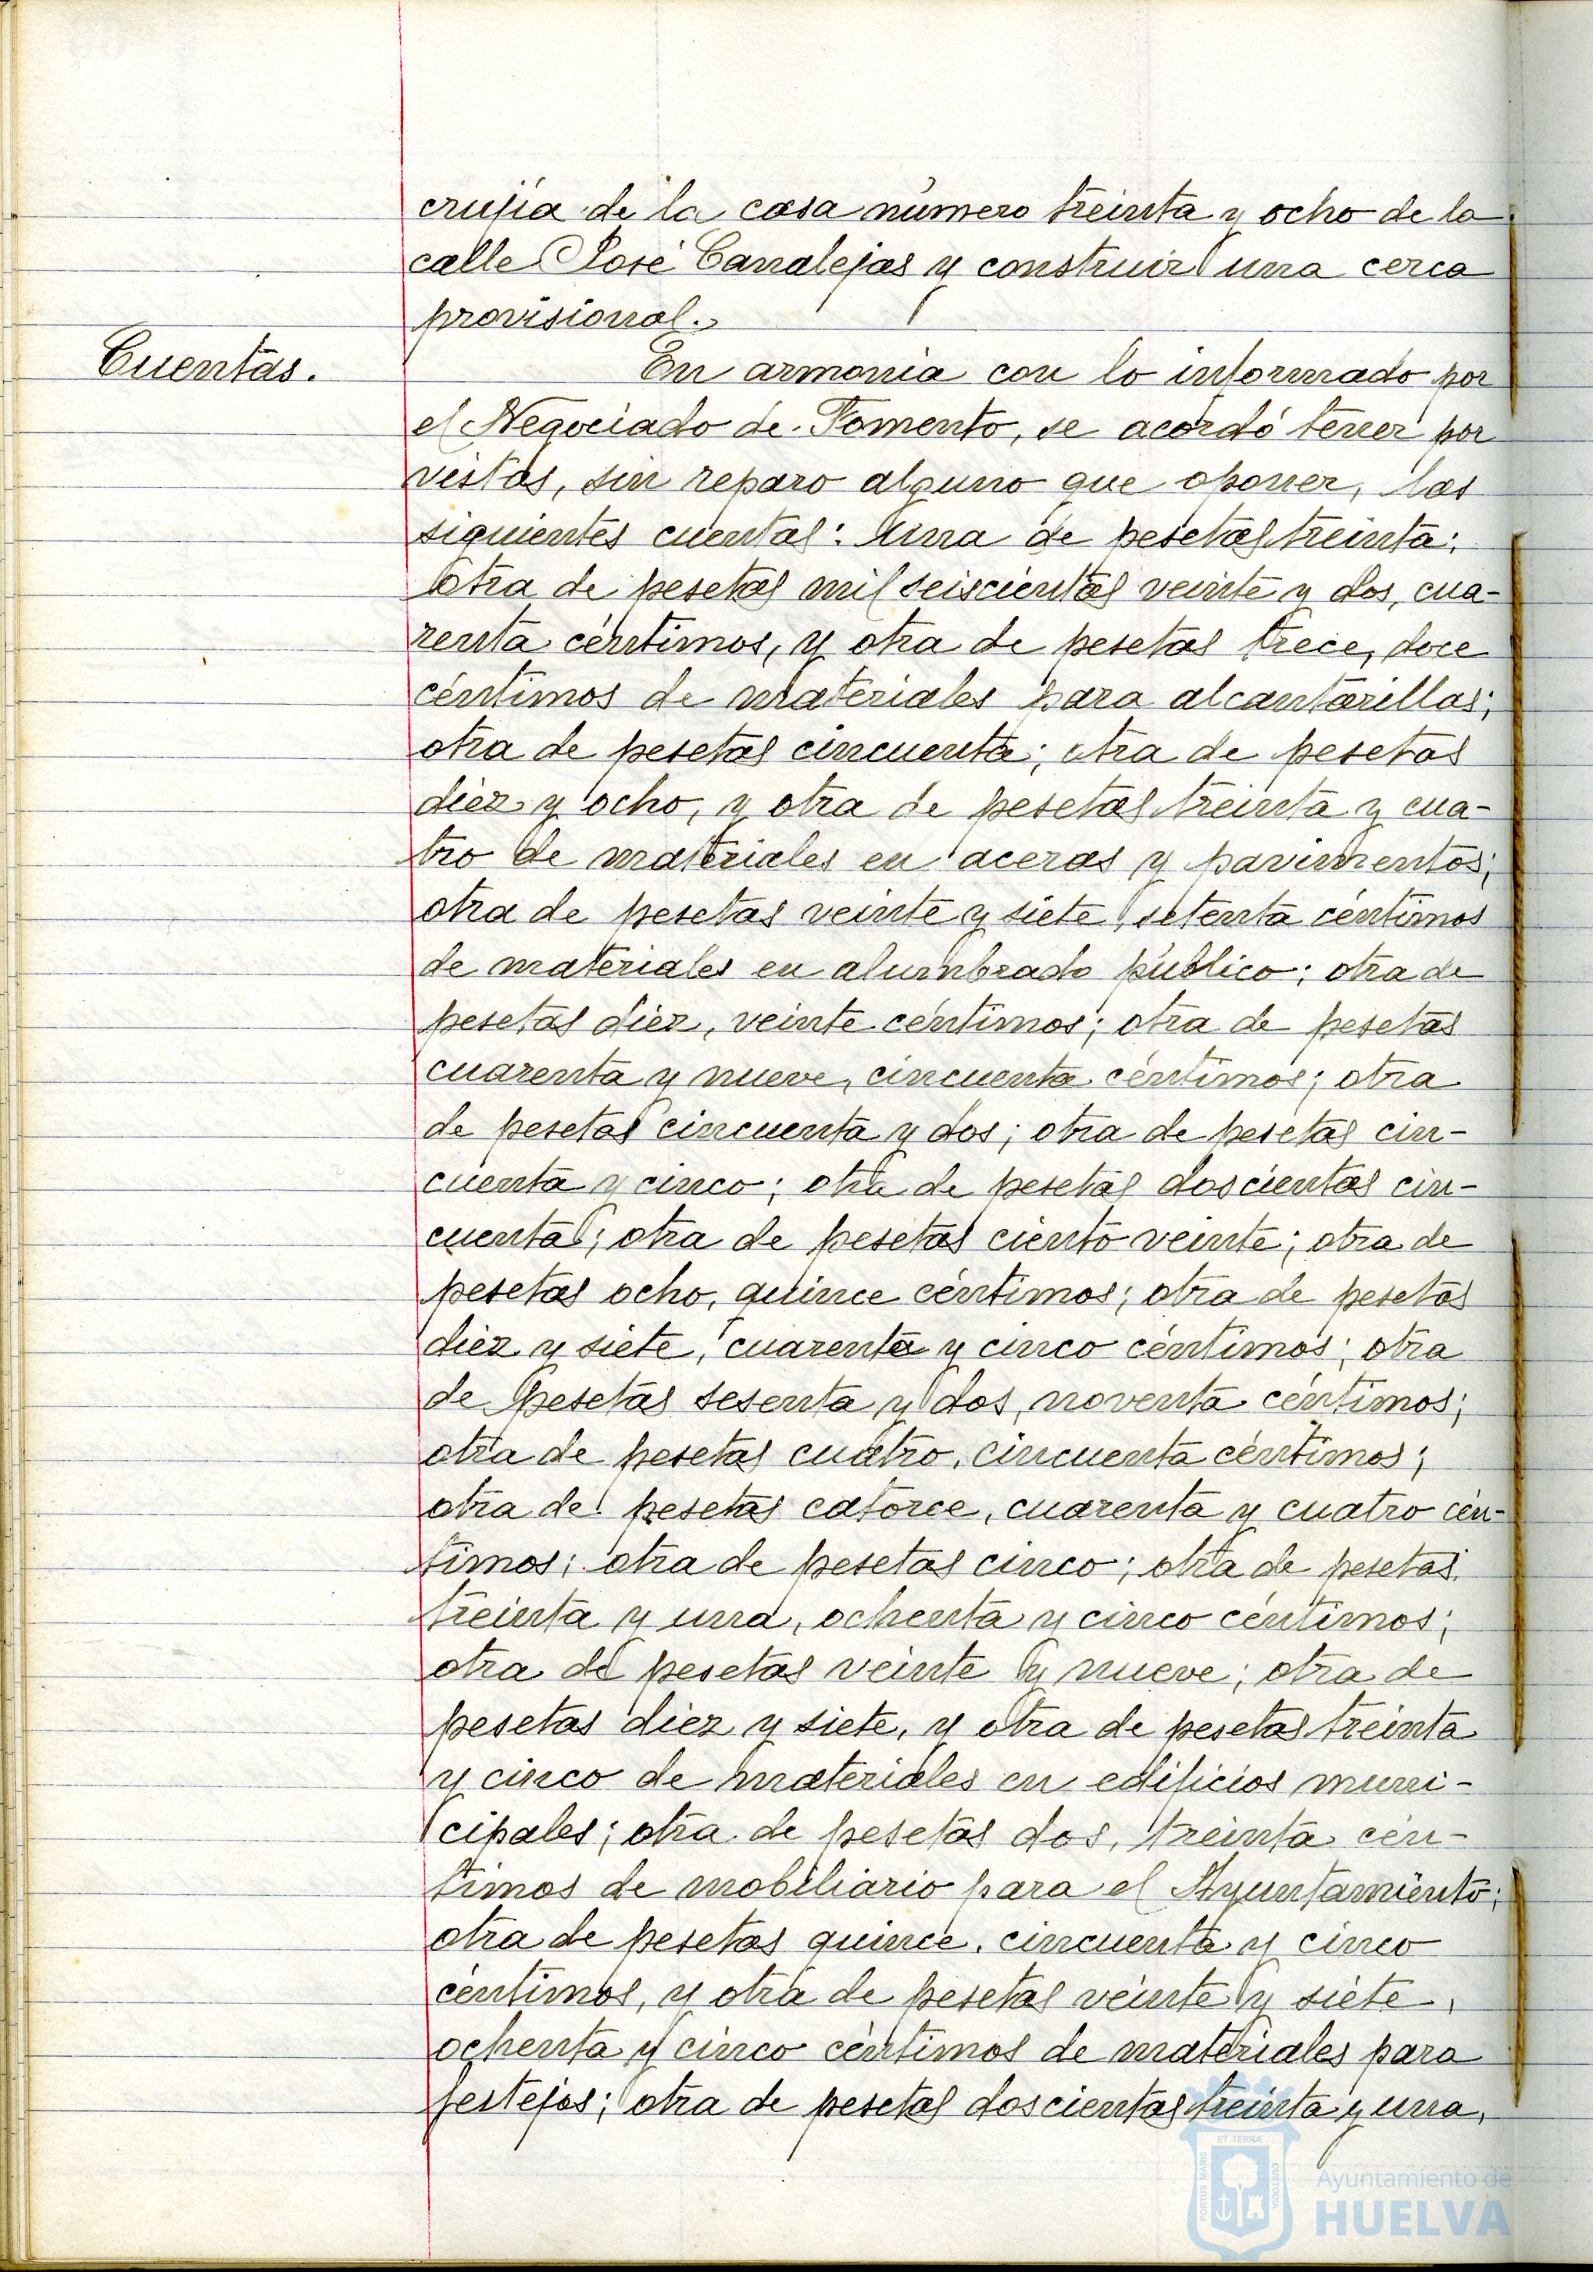 crujía de la casa número treinta y ocho de la
calle José Canalejas y construir una cerca
provisional.
Cuentas.
En armonía con lo informado por
el Negociado de Fomento, se acordó tener por
vistas, sin reparo alguno que oponer, las
siguientes cuentas: Una de pesetas treinta;
otra de pesetas mil seiscientas veinte y dos, cua-
renta céntimos, y otra de pesetas trece, doce
céntimos de materiales para alcantarillas;
otra de pesetas cincuenta; otra de pesetas
diez y ocho, y otra de pesetas treinta y cua-
tro de materiales en aceras y pavimentos;
otra de pesetas veinte y siete, setenta céntimos
de materiales en alumbrado público; otra de
pesetas diez, veinte céntimos; otra de pesetas
cuarenta y nueve, cincuenta céntimos; otra
de pesetas cincuenta y dos; otra de pesetas cin-
cuenta y cinco; otra de pesetas doscientas cin-
cuenta; otra de pesetas ciento veinte; otra de
pesetas ocho, quince céntimos; otra de pesetas
diez y siete, cuarenta y cinco céntimos; otra
de pesetas sesenta y dos, noventa céntimos;
otra de pesetas cuatro, cincuenta céntimos;
otra de pesetas catorce, cuarenta y cuatro cén-
timos; otra de pesetas cinco; otra de pesetas
treinta y una, ochenta y cinco céntimos;
otra de pesetas veinte y nueve; otra de
pesetas diez y siete, y otra de pesetas treinta
y cinco de materiales en edificios muni-
cipales; otra de pesetas dos, treinta cén-
timos de mobiliario para el Ayuntamiento;
otra de pesetas quince, cincuenta y cinco
céntimos, y otra de pesetas veinte y siete,
ochenta y cinco céntimos de materiales para
festejos; otra de pesetas doscientas treinta y una,
ET TERRÆ
PORTUS MARIS
CUSTODIA
Ayuntamiento de
HUELVA